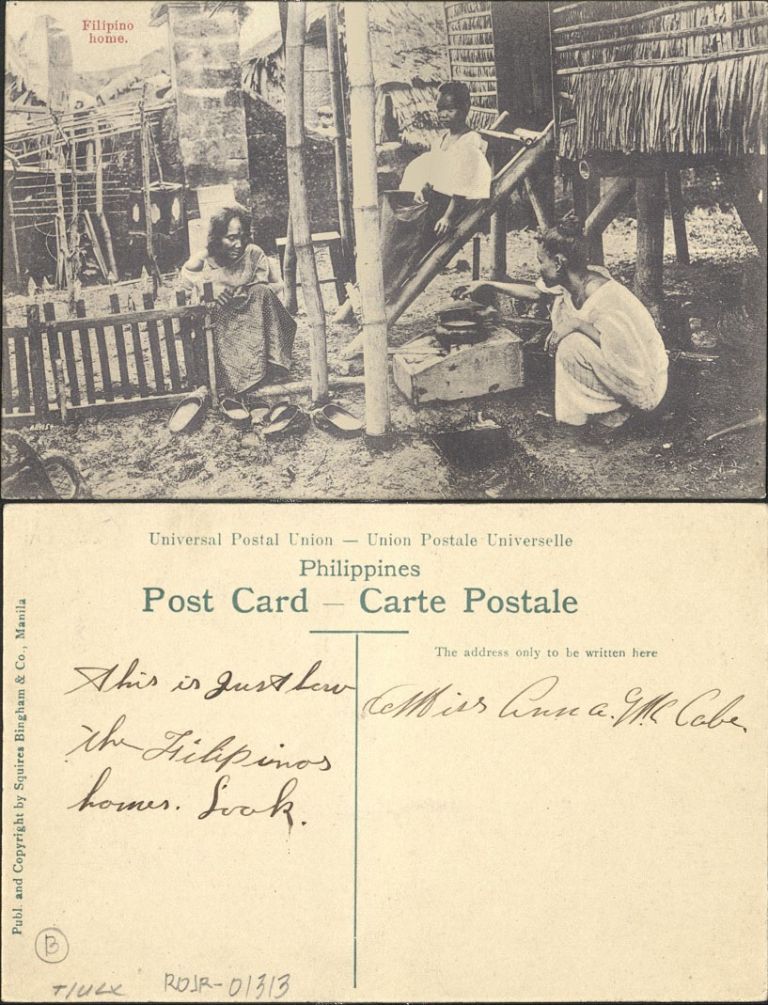 Filipino
home.
Universal Postal Union — Union Postale Universelle
Philippines
Post Card — Carte Postale
The address only to be written here
This is just how
the Filipinos
homes. Look.
Miss Anna. Mc Cabe
Publ. and Copyright by Squires Bingham & Co., Manila
B
ROJR-01313